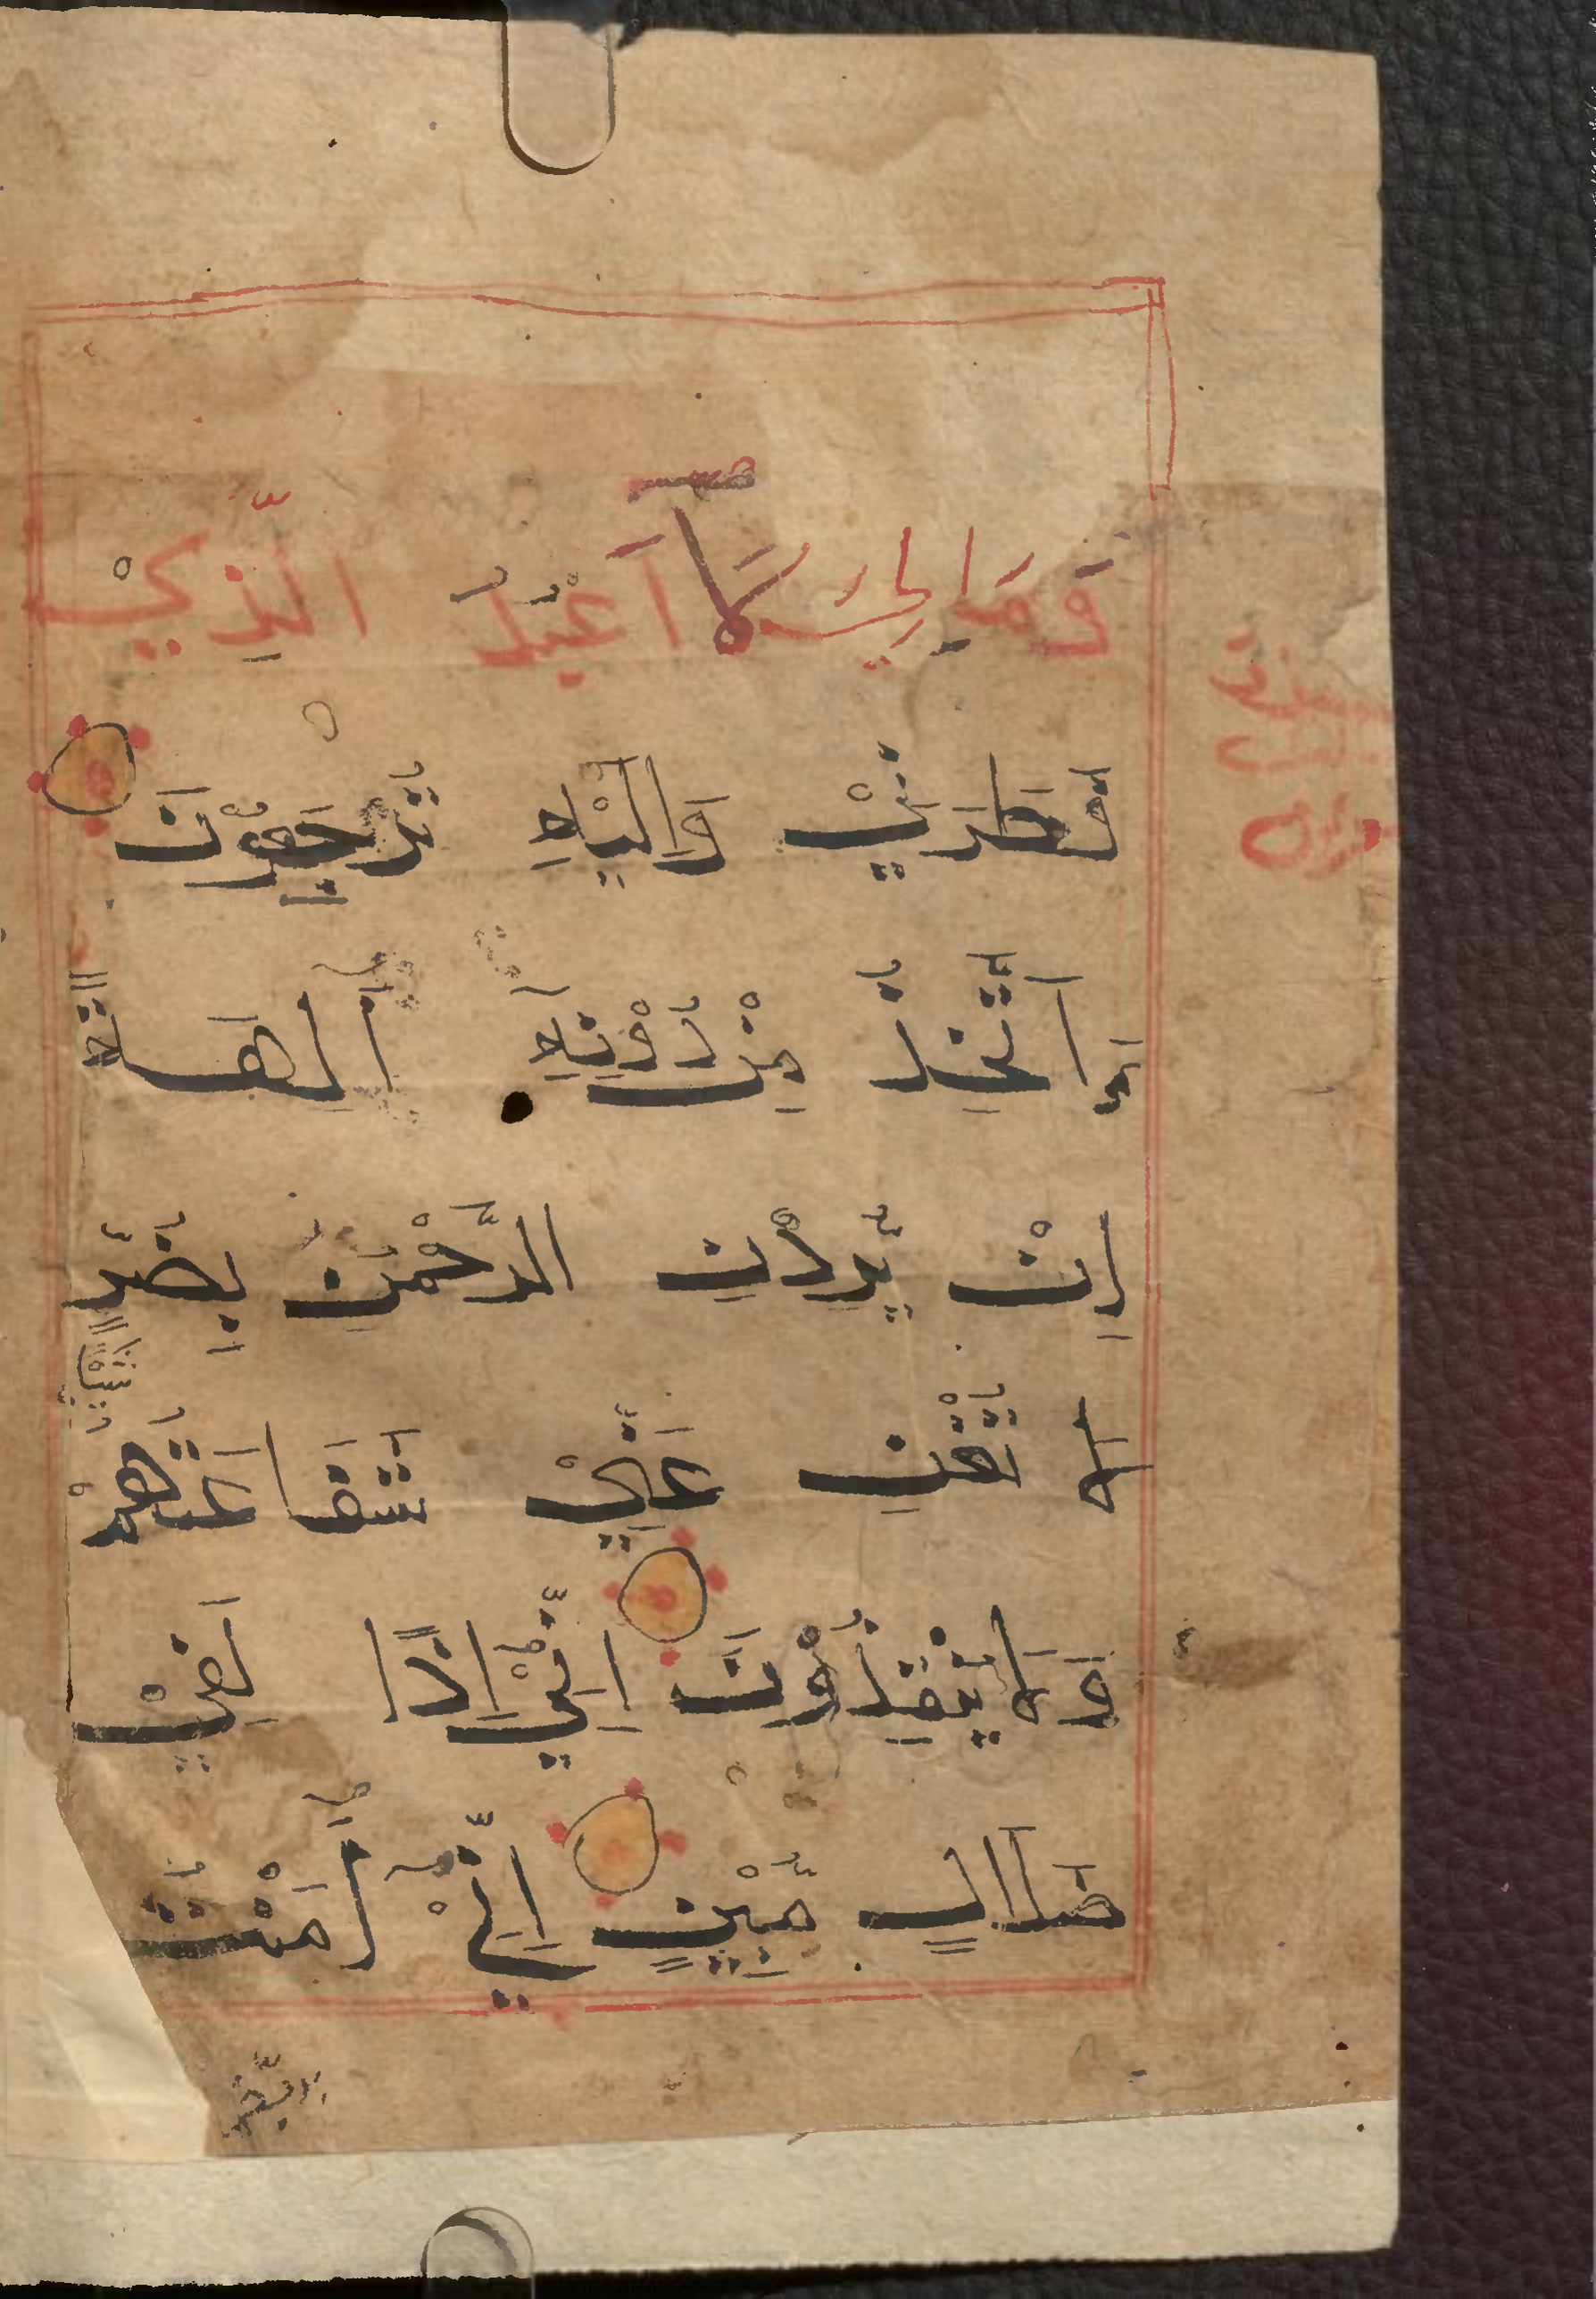 وَمَا لِيَ لَآ اَعْبُدُ الَّذِيْ
فَطَرَنِيْ وَاِلَيْهِ تُرْجَعُوْنَ
ءَاَتَّخِذُ مِنْ دُوْنِهٖٓ اٰلِهَةً
اِنْ يُّرِدْنِ الرَّحْمٰنُ بِضُرٍّ
لَا تُغْنِ عَنِّيْ
شَفَاعَتُهُمْ
شَيْئًا
وَلَا يُنْقِذُوْنَ اِنِّيْ اِذًا لَفِيْ
ضَلَالٍ مُّبِيْنٍ اِنِّيْٓ اٰمَنْتُ
بِرَبِّكُمْ
سورة
يس